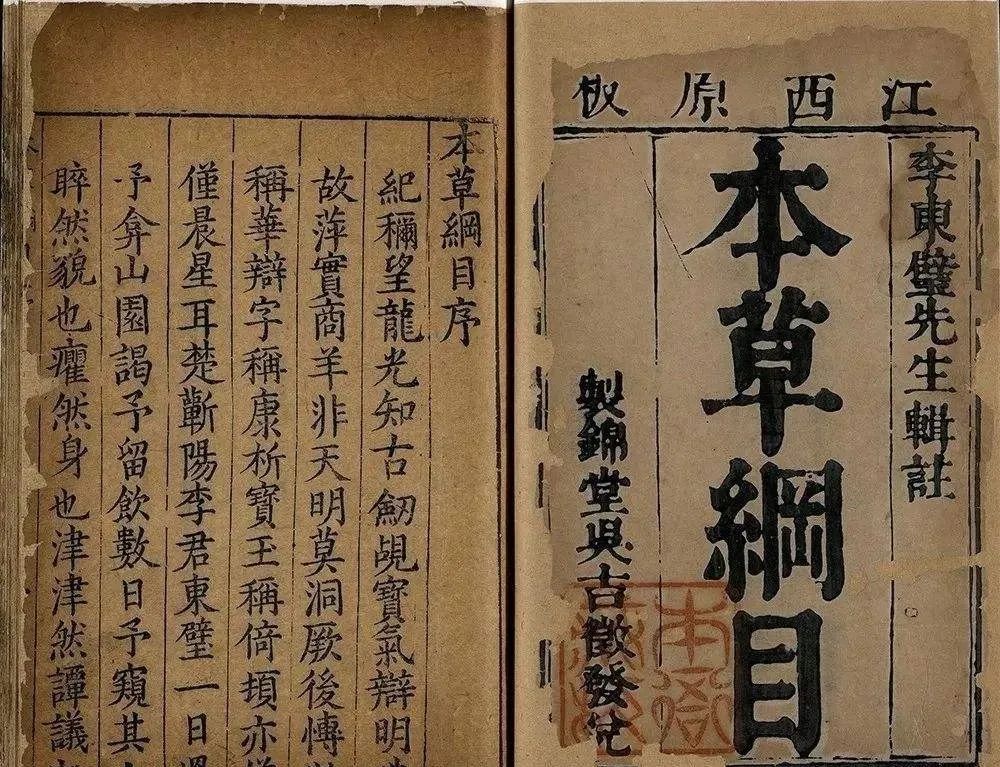 江西原板
李東璧先生輯註
本草綱目
製錦堂吳古徵發兌
本草綱目序
紀穪望龍光知古劒覘寶氣辯明
故萍實商羊非天明莫洞厥後博
稱華辯字稱康析寶玉稱倚頓亦
僅晨星耳楚蘄陽李君東璧一日
予弇山園謁予留飲數日予窺其
睟然貌也癯然身也津津然譚議